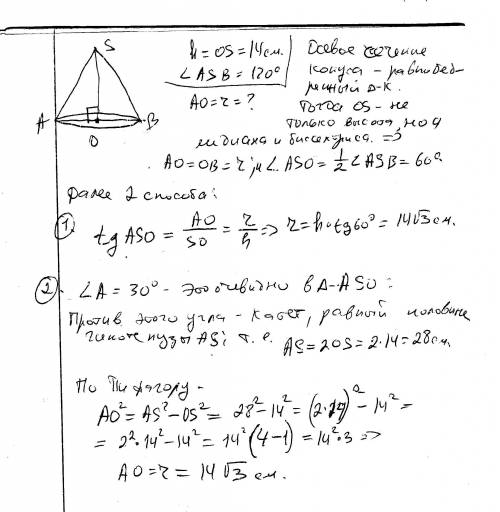 S
A
B
O
h = OS = 14 см.
∠ASB = 120°
AO = r = ?
Осевое сечение
конуса - равнобед-
ренный Δ-к.
Тогда OS - не
только высота, но и
медиана и биссектриса. =>
AO = OB = r; и ∠ASO = 1/2 ∠ASB = 60°
Далее 2 способа:
1. tg ASO = AO/SO = r/h => r = h·tg60° = 14√3 см.
2. ∠A = 30° - это очевидно в Δ-ASO:
Против этого угла - катет, равный половине
гипотенузы AS; т.е. AS = 2OS = 2·14 = 28 см.
По Пифагору -
AO² = AS² - OS² = 28² - 14² = (2·14)² - 14² =
= 2²·14² - 14² = 14²(4-1) = 14²·3 =>
AO = r = 14√3 см.